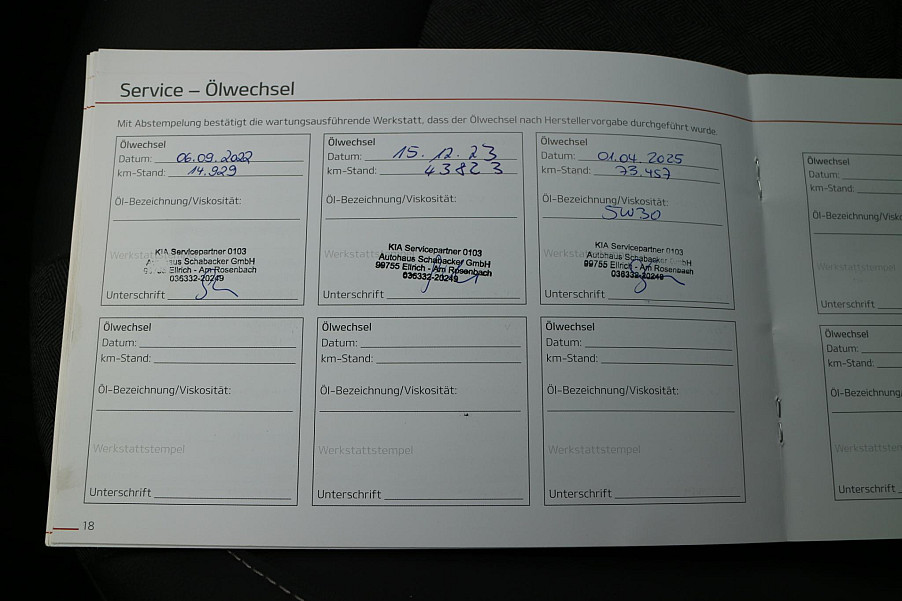 Service – Ölwechsel
Mit Abstempelung bestätigt die wartungsausführende Werkstatt, dass der Ölwechsel nach Herstellervorgabe durchgeführt wurde.
Ölwechsel
Datum: 06.09.2022
km-Stand: 14.929
Öl-Bezeichnung/Viskosität:
KIA Servicepartner 0103
Autohaus Schabacker GmbH
99755 Ellrich - Am Rosenbach
036332-20249
Unterschrift
Ölwechsel
Datum: 15.12.23
km-Stand: 43823
Öl-Bezeichnung/Viskosität:
KIA Servicepartner 0103
Autohaus Schabacker GmbH
99755 Ellrich - Am Rosenbach
036332-20249
Unterschrift
Ölwechsel
Datum: 01.04.2025
km-Stand: 73.457
Öl-Bezeichnung/Viskosität:
5W30
KIA Servicepartner 0103
Autohaus Schabacker GmbH
99755 Ellrich - Am Rosenbach
036332-20249
Unterschrift
Ölwechsel
Datum:
km-Stand:
Öl-Bezeichnung/
Unterschrift
Ölwechsel
Datum:
km-Stand:
Öl-Bezeichnung/Viskosität:
Werkstattstempel
Unterschrift
Ölwechsel
Datum:
km-Stand:
Öl-Bezeichnung/Viskosität:
Werkstattstempel
Unterschrift
Ölwechsel
Datum:
km-Stand:
Öl-Bezeichnung/Viskosität:
Werkstattstempel
Unterschrift
Ölwechsel
Datum:
km-Stand:
Öl-Bezeichnung/
Unterschrift
18